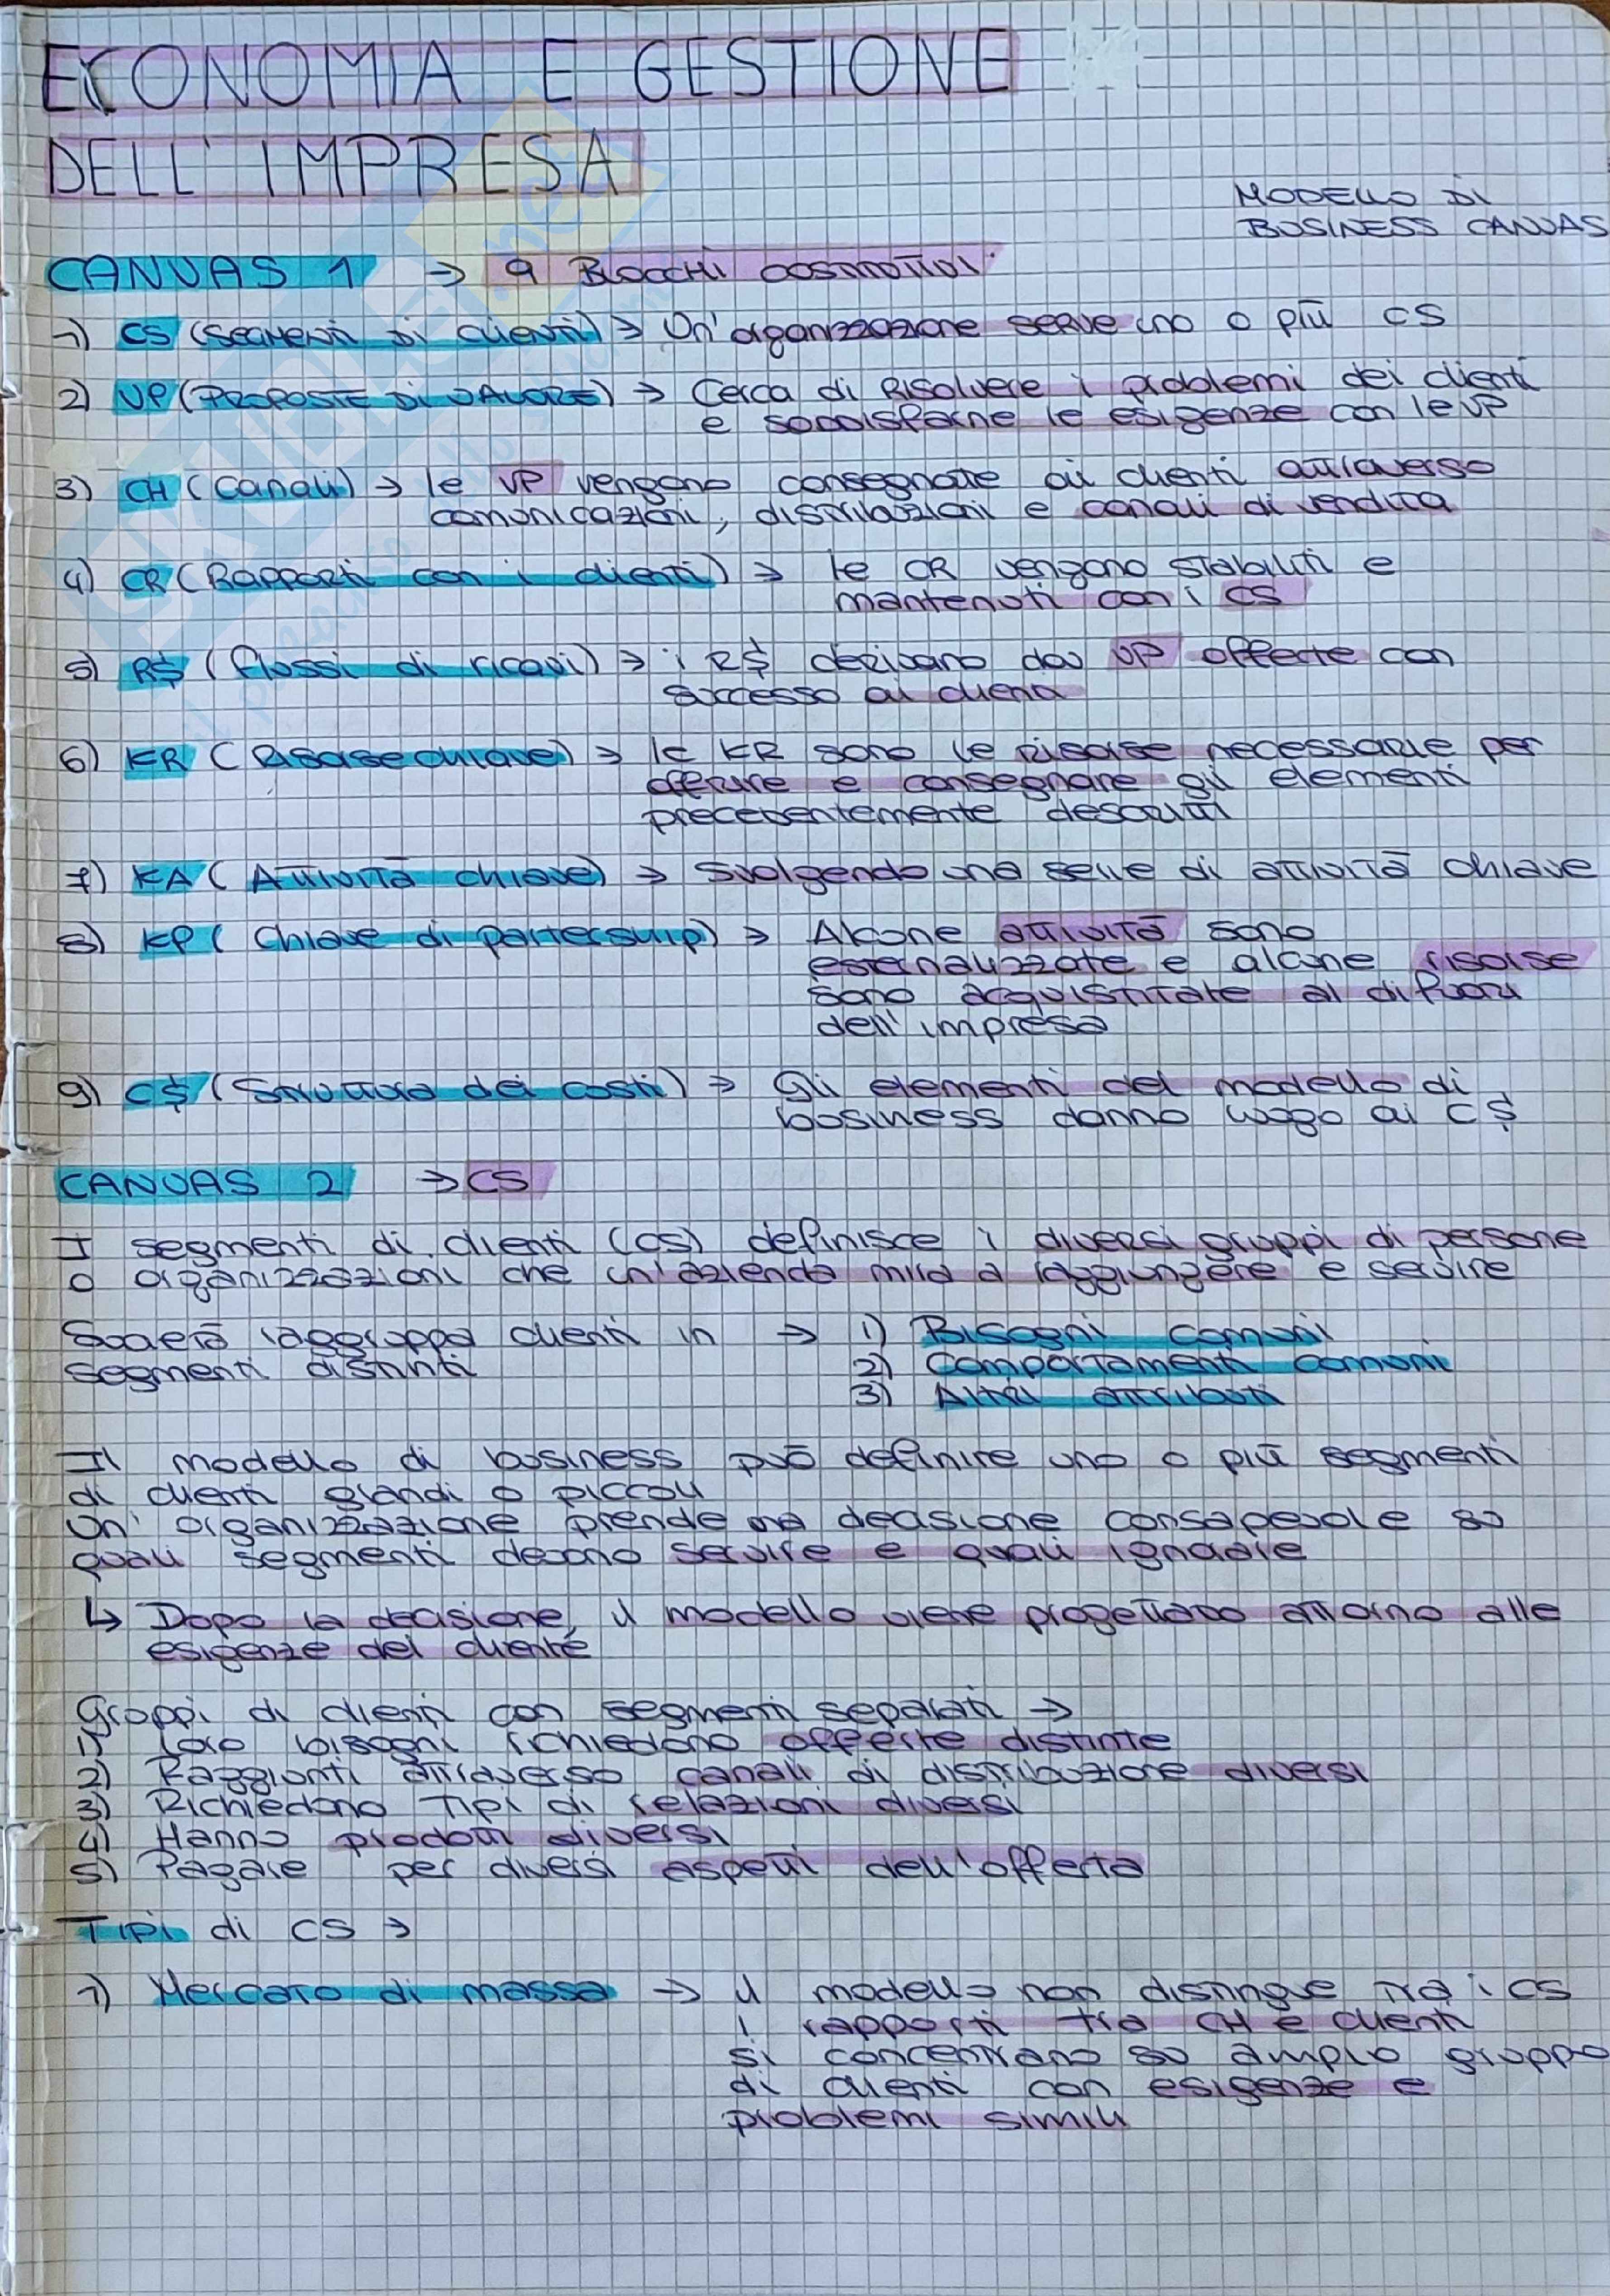 ECONOMIA E GESTIONE
DELL'IMPRESA
MODELLO DI
BUSINESS CANVAS
CANVAS 1 → 9 Blocchi costruttivi
1) CS (Segmenti di clienti) → Un'organizzazione serve uno o più CS
2) VP (Proposte di valore) → Cerca di risolvere i problemi dei clienti
e soddisfarne le esigenze con le VP
3) CH (Canali) → le VP vengono consegnate ai clienti attraverso
comunicazioni, distribuzioni e canali di vendita
4) CR (Rapporti con i clienti) → le CR vengono stabiliti e
mantenuti con i CS
5) R$ (flussi di ricavi) → i R$ derivano dai VP offerte con
successo ai clienti
6) KR (Risorse chiave) → le KR sono le risorse necessarie per
offrire e consegnare gli elementi
precedentemente descritti
7) KA (Attività chiave) → svolgendo una serie di attività chiave
8) KP (Chiave di partership) → Alcune attività sono
esternalizzate e alcune risorse
sono acquistitate al di fuori
dell'impresa
9) C$ (Struttura dei costi) → Gli elementi del modello di
business danno luogo ai C$
CANVAS 2 → CS
I segmenti di clienti (CS) definisce i diversi gruppi di persone
o organizzazioni che un'azienda mira a raggiungere e servire
Società raggruppa clienti in → 1) Bisogni comuni
segmenti distinti 2) Comportamenti comuni
3) Altri attributi
Il modello di business può definire uno o più segmenti
di clienti grandi o piccoli
Un'organizzazione prende una decisione consapevole su
quali segmenti devono servire e quali ignorare
↳ Dopo la decisione, il modello viene progettato attorno alle
esigenze del cliente
Gruppi di clienti con segmenti separati →
1) Loro bisogni richiedono offerte distinte
2) Raggiunti attraverso canali di distribuzione diversi
3) Richiedono tipi di relazioni diversi
4) Hanno prodotti diversi
5) Pagare per diversi aspetti dell'offerta
Tipi di CS →
1) Mercato di massa → il modello non distingue tra i CS
i rapporti tra CH e clienti
si concentrano su ampio gruppo
di clienti con esigenze e
problemi simili
SKUOLA.net